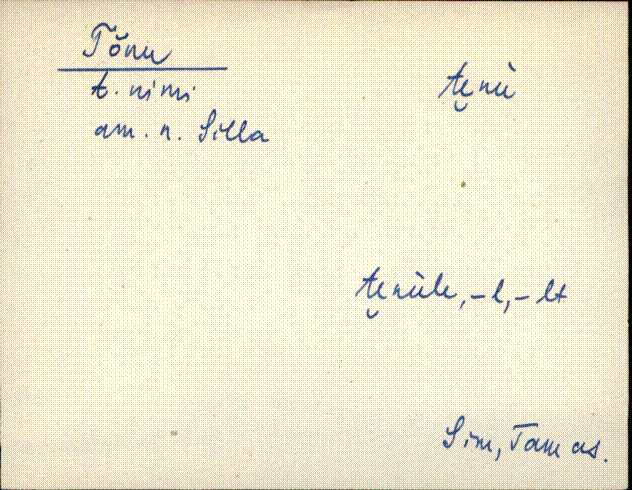 Tõnu
t. nimi
am. n. Silla
te̮nù
te̮nùle, -l, -lt
Sim, Tamas.